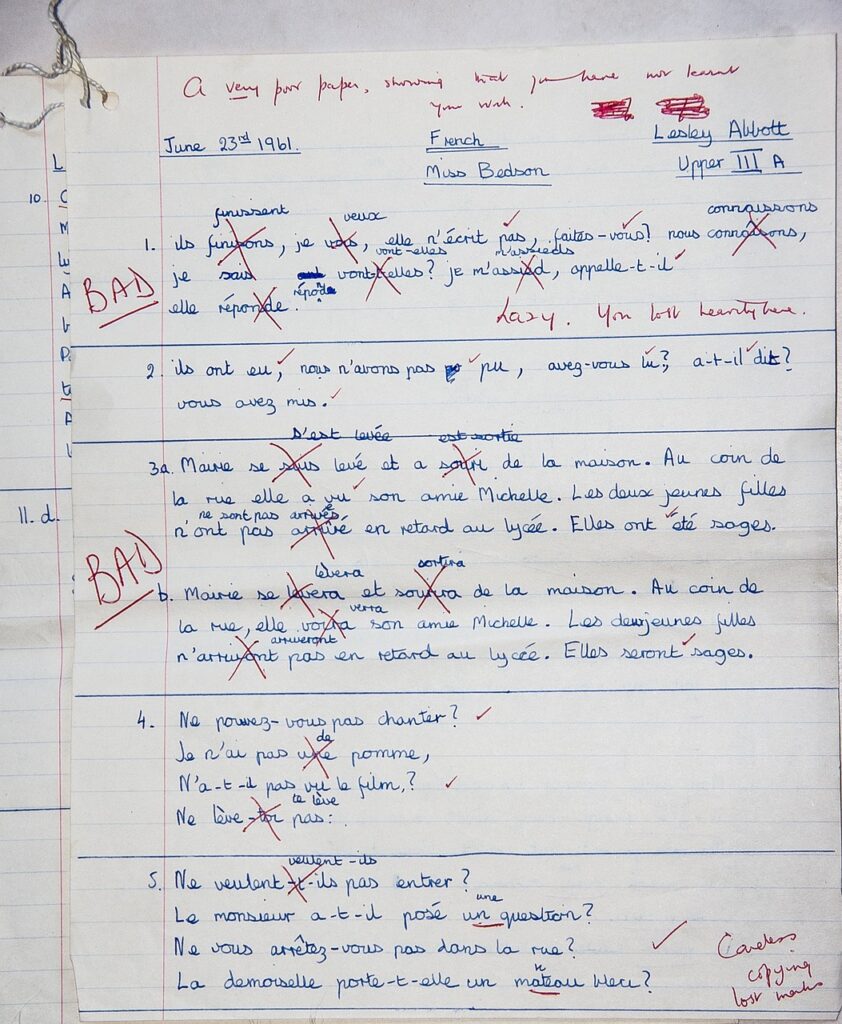 A very poor paper, showing that you have not learnt
your work.
June 23rd 1961. French Lesley Abbott
Miss Bedson Upper III A
finissent veux connaissons
1. ils finisons, je vois, elle n'écrit pas, faites-vous? nous connaisons,
vont-elles m'assieds
je sais vont-t-elles? je m'assied, appelle-t-il
BAD
elle réponde. répond
Lazy. You lost heavily here.
2. ils ont eu, nous n'avons pas pu, avez-vous lu? a-t-il dit?
vous avez mis.
s'est levée est sortie
3a. Mairie se suis levé et a souri de la maison. Au coin de
la rue elle a vu son amie Michelle. Les deux jeunes filles
ne sont pas arrivés
n'ont pas arrivé en retard au lycée. Elles ont été sages.
BAD
lèvera sortira
b. Mairie se levera et sourira de la maison. Au coin de
verra
la rue, elle voira son amie Michelle. Les deux jeunes filles
arriveront
n'arrivont pas en retard au lycée. Elles seront sages.
4. Ne pouvez-vous pas chanter?
de
Je n'ai pas une pomme,
N'a-t-il pas vu le film,?
te lève
Ne lève-toi pas:
veulent-ils
5. Ne veulent-t-ils pas entrer?
une
Le monsieur a-t-il posé un question?
Ne vous arrêtez-vous pas dans la rue?
n
La demoiselle porte-t-elle un mateau bleu?
Careless
copying
lost marks
L
10. C
M
A
P
A
11. d.